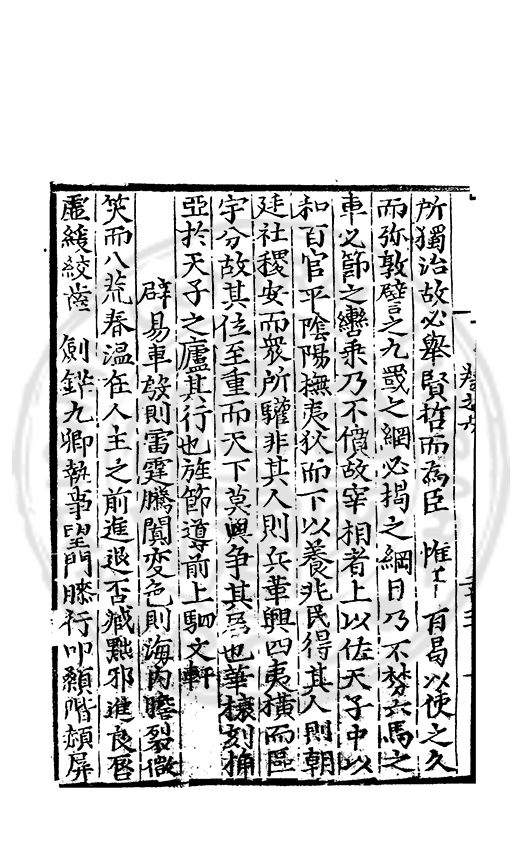 所獨治故必舉賢哲而為臣 惟 有曷以使之久
而弥敦譬之九罭之網必揭之綱目乃不棼六馬之
車必節之轡乘乃不僨故宰相者上以佐天子中以
和百官平陰陽撫夷狄而下以養兆民得其人則朝
廷社稷安而衆所驩非其人則兵革興四夷橫而區
宇分故其位至重而天下莫與爭其 也華榱刻桷
亞於天子之廬其行也旌節導前上駟文軒
辟易車發則雷霆騰闐変色則海内膽裂微
笑而八荒春温在人主之前進退否臧黜邪進良唇
虛緩絞齒 劍鋅九卿執事望門膝行叩顙階頰屏